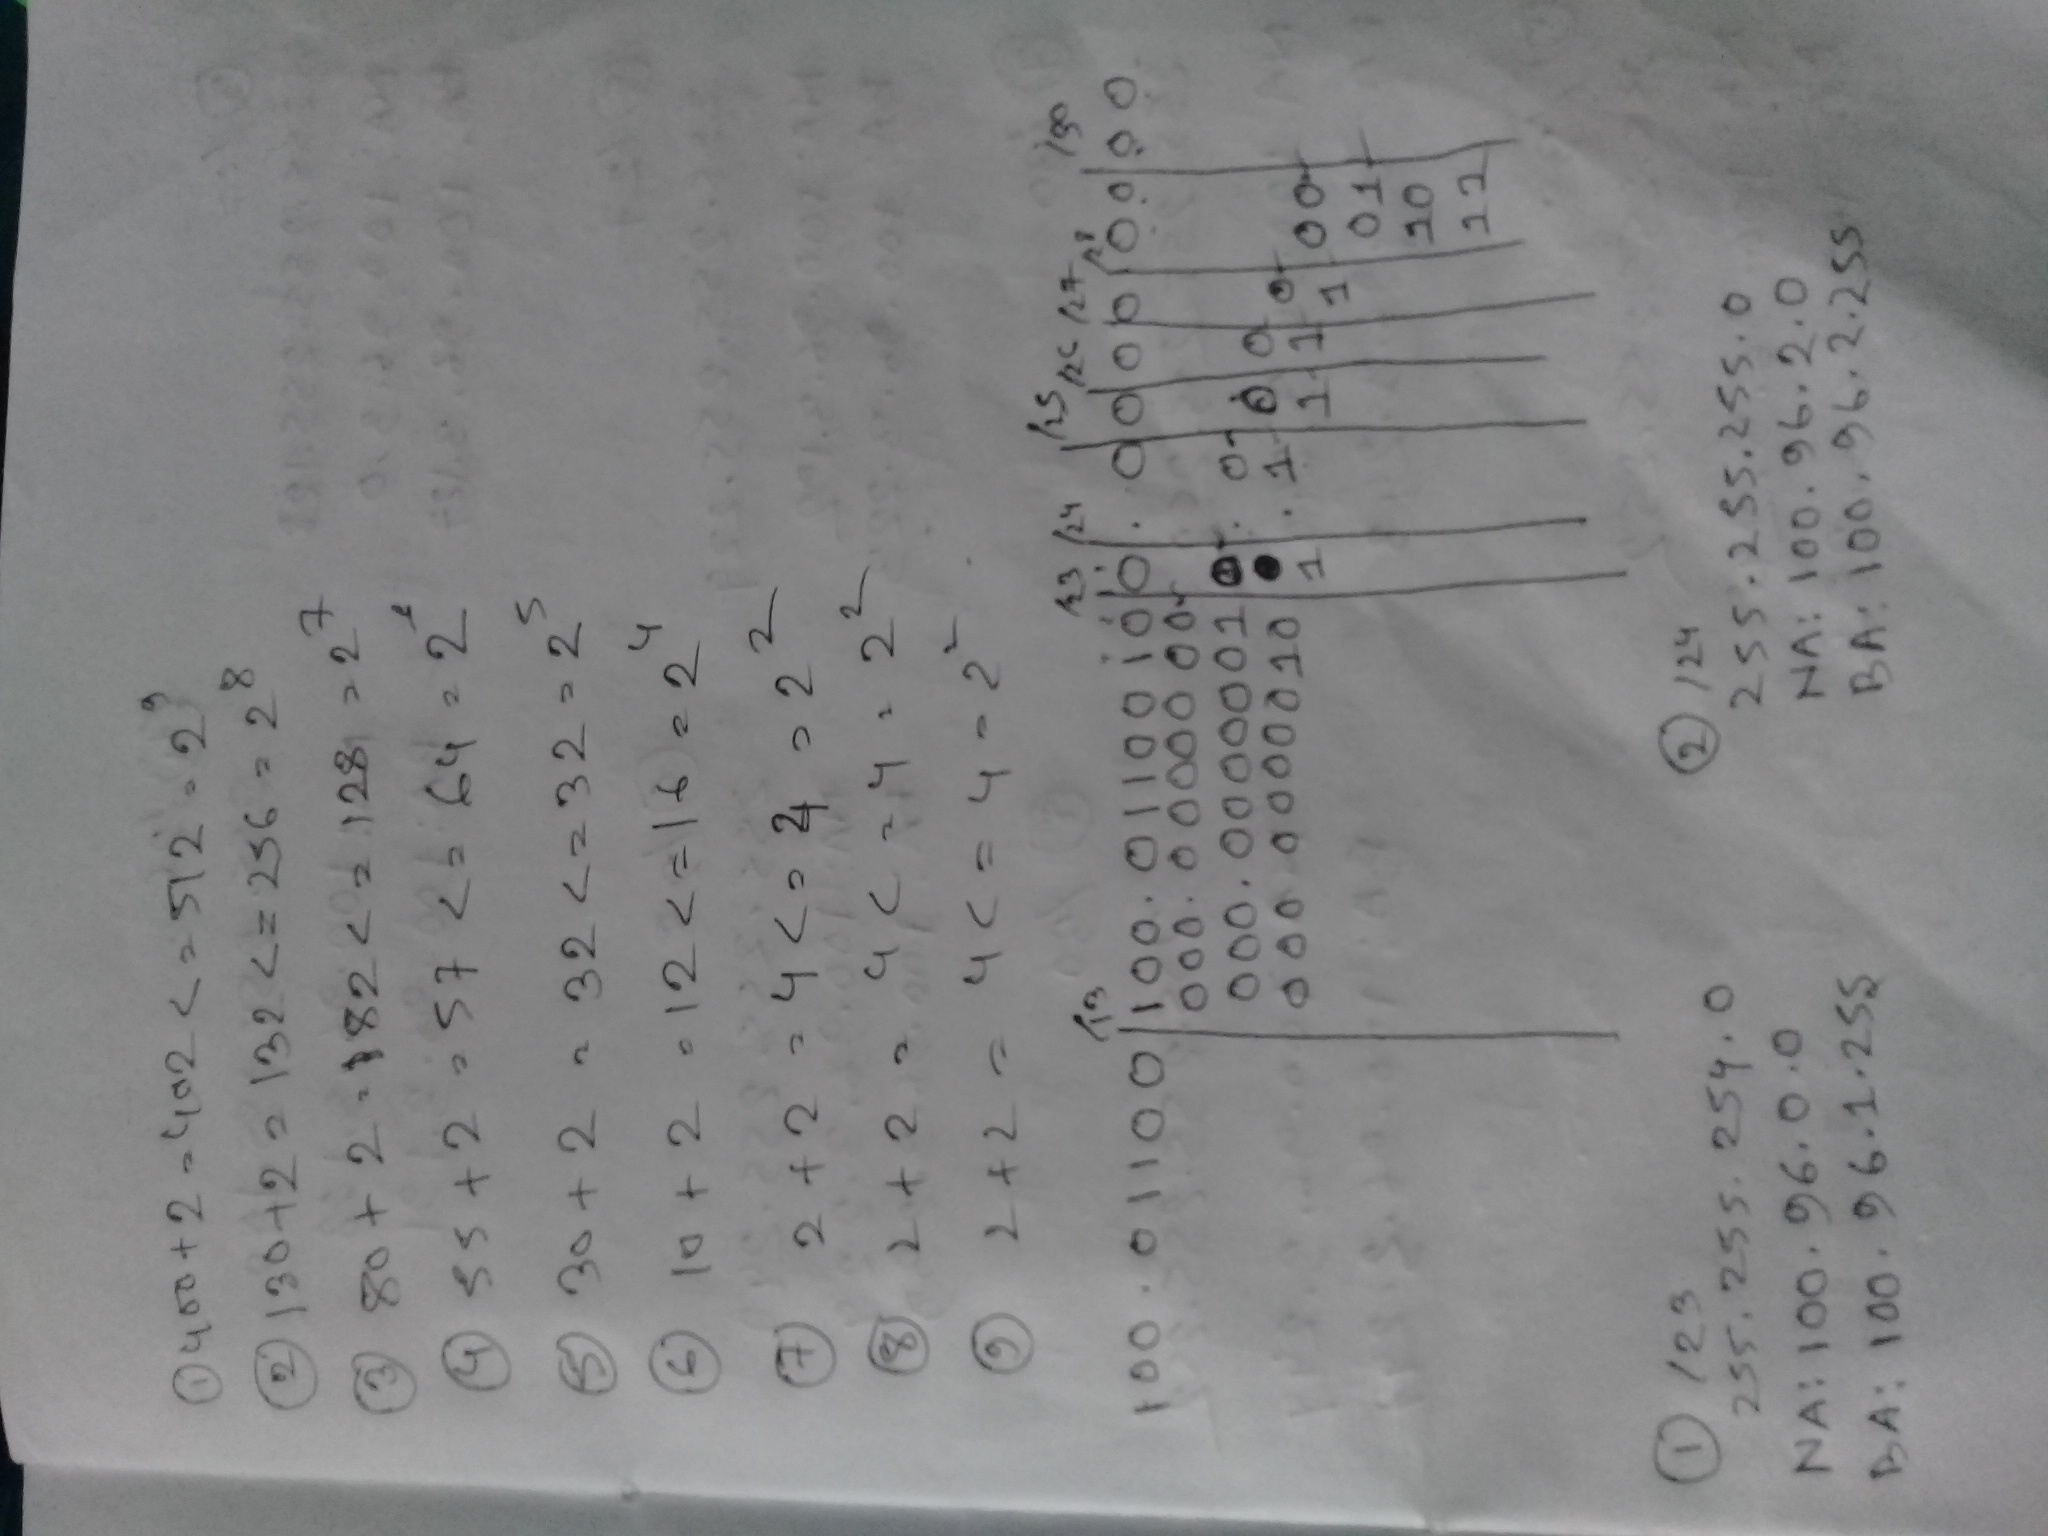 ① 400 + 2 = 402 <= 512 = 2⁹
② 130 + 2 = 132 <= 256 = 2⁸
③ 80 + 2 = 82 <= 128 = 2⁷
④ 55 + 2 = 57 <= 64 = 2⁶
⑤ 30 + 2 = 32 <= 32 = 2⁵
⑥ 10 + 2 = 12 <= 16 = 2⁴
⑦ 2 + 2 = 4 <= 4 = 2²
⑧ 2 + 2 = 4 <= 4 = 2²
⑨ 2 + 2 = 4 <= 4 = 2²
/13 /23 /24 /25 /26 /27 /28 /30
100.01100|100.0110010|0|.0|0|0|0|00|00
000.0000000
000.0000001 0. 0
000 0000010 . 1 0 0 0
1 1 1 1 00
01
10
11
① /23
255.255.254.0
NA: 100.96.0.0
BA: 100.96.1.255
② /24
255.255.255.0
NA: 100.96.2.0
BA: 100.96.2.255